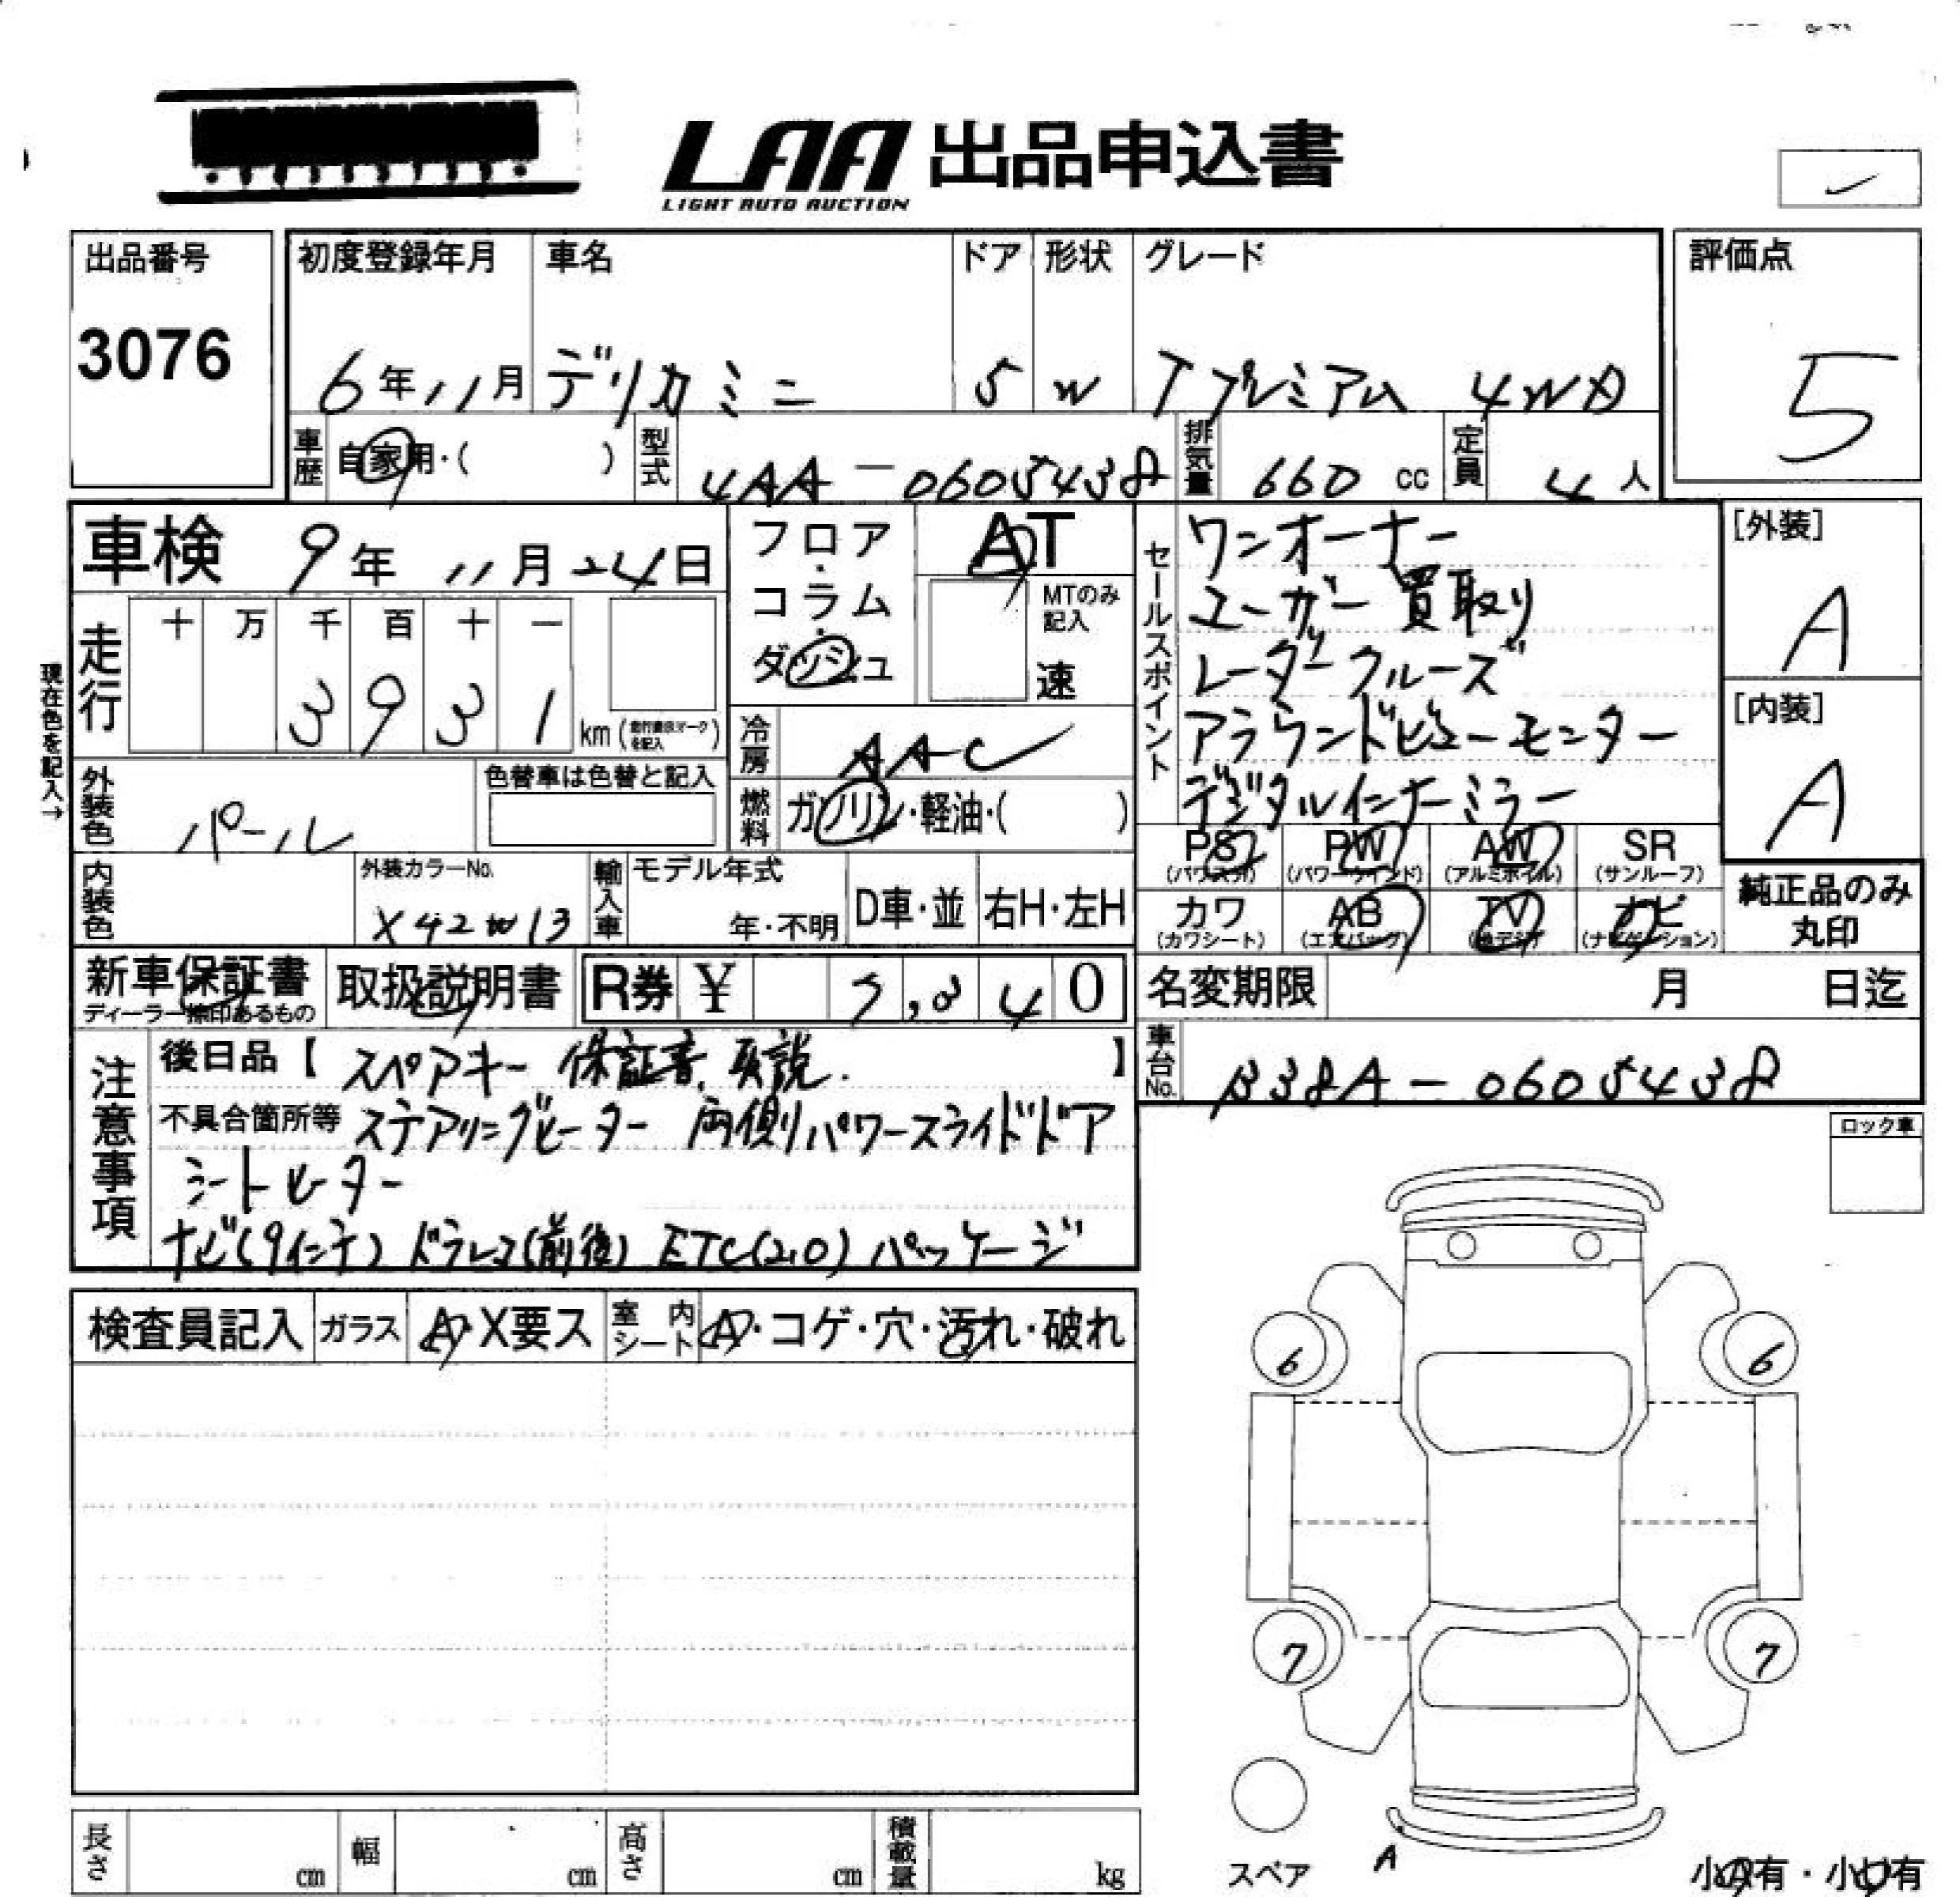 LAA 出品申込書
LIGHT AUTO AUCTION
出品番号
3076
初度登録年月
6年11月
車名
デリカミニ
ドア
5
形状
W
グレード
Tプレミアム 4WD
評価点
5
車歴
自家用・( )
型式
4AA-0605438
排気量
660 cc
定員
4 人
車検 9年 11月 24日
走行
十 万 千 百 十 一
3 9 3 1 km (走行表示マークを記入)
現在色を記入→
フロア・コラム・ダッシュ
AT
MTのみ記入
速
冷房
AAC
燃料
ガソリン・軽油・( )
セールスポイント
ワンオーナー
ユーザー買取り
レーダークルーズ
アラウンドビューモニター
デジタルインナーミラー
[外装]
A
[内装]
A
外装色
パール
色替車は色替と記入
内装色
外装カラーNo.
X42W13
輸入車
モデル年式
年・不明
D車・並
右H・左H
PS
(パワステ)
PW
(パワーウインド)
AW
(アルミホイル)
SR
(サンルーフ)
カワ
(カワシート)
AB
(エアバッグ)
TV
(地デジ)
ナビ
(ナビゲーション)
純正品のみ
丸印
新車保証書
ディーラー捺印あるもの
取扱説明書
R券 ¥
0
名変期限
月 日迄
車台No.
B38A-0605438
注意事項
後日品【 スペアキー 保証書、取説. 】
不具合箇所等 ステアリングヒーター 両側パワースライドドア
シートヒーター
ナビ(9インチ) ドラレコ(前後) ETC(2.0) パッケージ
ロック車
検査員記入
ガラス
A・X要ス
室内シート
A・コゲ・穴・汚れ・破れ
6
6
7
7
スペア
A
小A有・小U有
長さ cm
幅 cm
高さ cm
積載量 kg